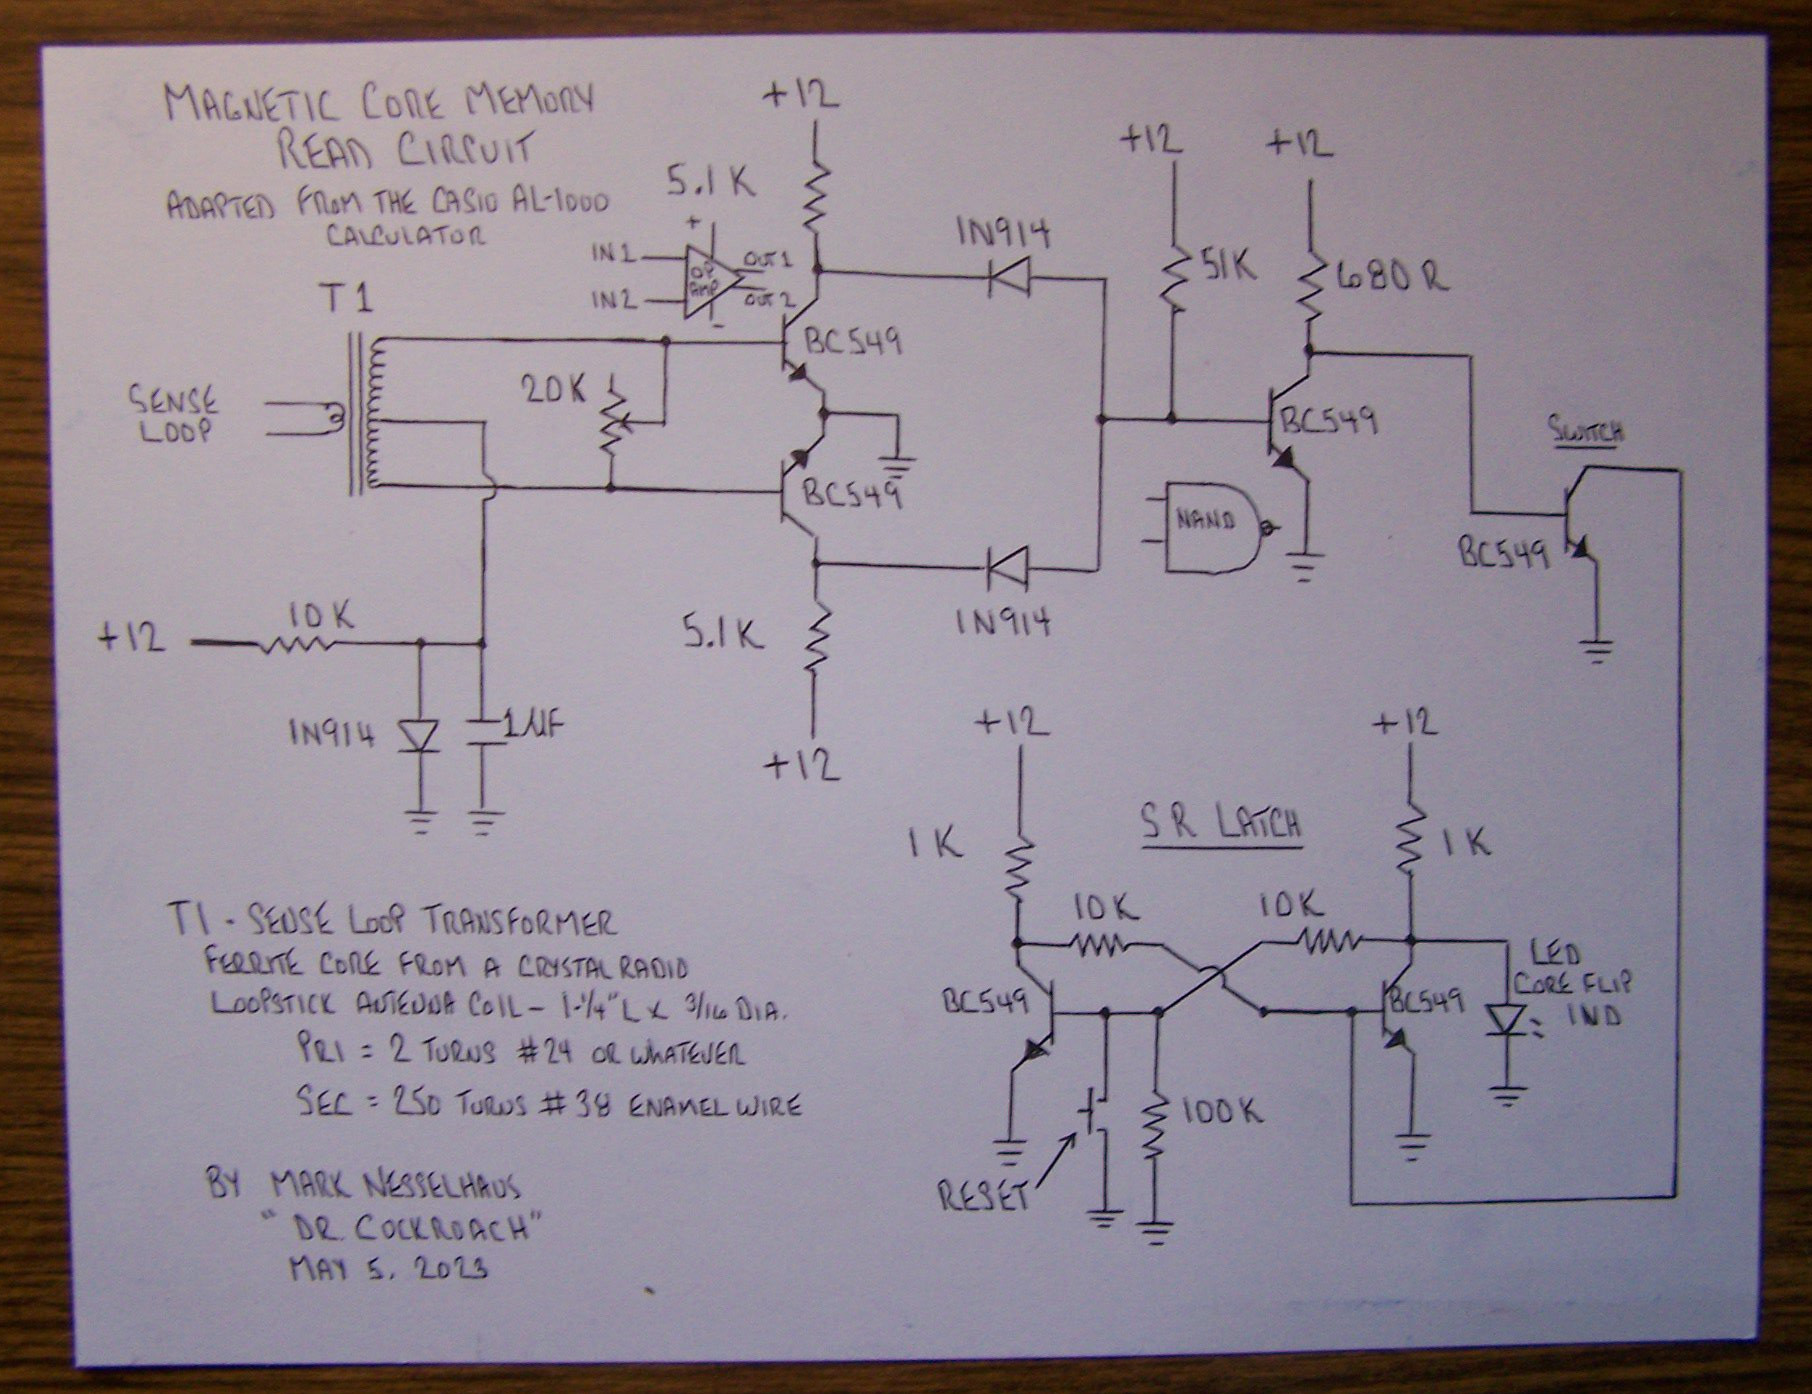 MAGNETIC CORE MEMORY
READ CIRCUIT
ADAPTED FROM THE CASIO AL-1000
CALCULATOR
+12
5.1K
+
IN1
IN2
OP
AMP
OUT 1
OUT 2
-
T1
SENSE
LOOP
20K
BC549
BC549
1N914
1N914
+12
+12
51K
680R
BC549
NAND
SWITCH
BC549
+12
10K
1N914
1UF
5.1K
+12
+12
+12
SR LATCH
1K
1K
10K
10K
BC549
BC549
LED
CORE FLIP
IND
RESET
100K
T1 - SENSE LOOP TRANSFORMER
FERRITE CORE FROM A CRYSTAL RADIO
LOOPSTICK ANTENNA COIL - 1-1/4" L X 3/16 DIA.
PRI = 2 TURNS #24 OR WHATEVER
SEC = 250 TURNS #38 ENAMEL WIRE
BY MARK NESSELHAUS
"DR. COCKROACH"
MAY 5, 2023